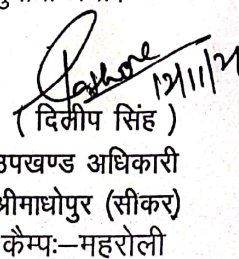 12/11/2
( दिलीप सिंह )
उपखण्ड अधिकारी
श्रीमाधोपुर (सीकर)
कैम्प:–महरोली